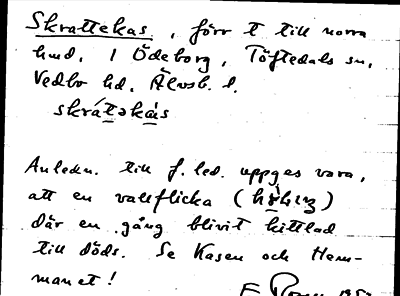 Skrattekas, förr t till norra
hmd. 1 Ödeborg, Töftedals sn,
Vedbo hd. Älvsb. l.
skrátəkás
Anledn. till f. led. uppges vara,
att en vallflicka
där en gång blivit kittlad
till döds. Se Kasen och Hem-
manet!